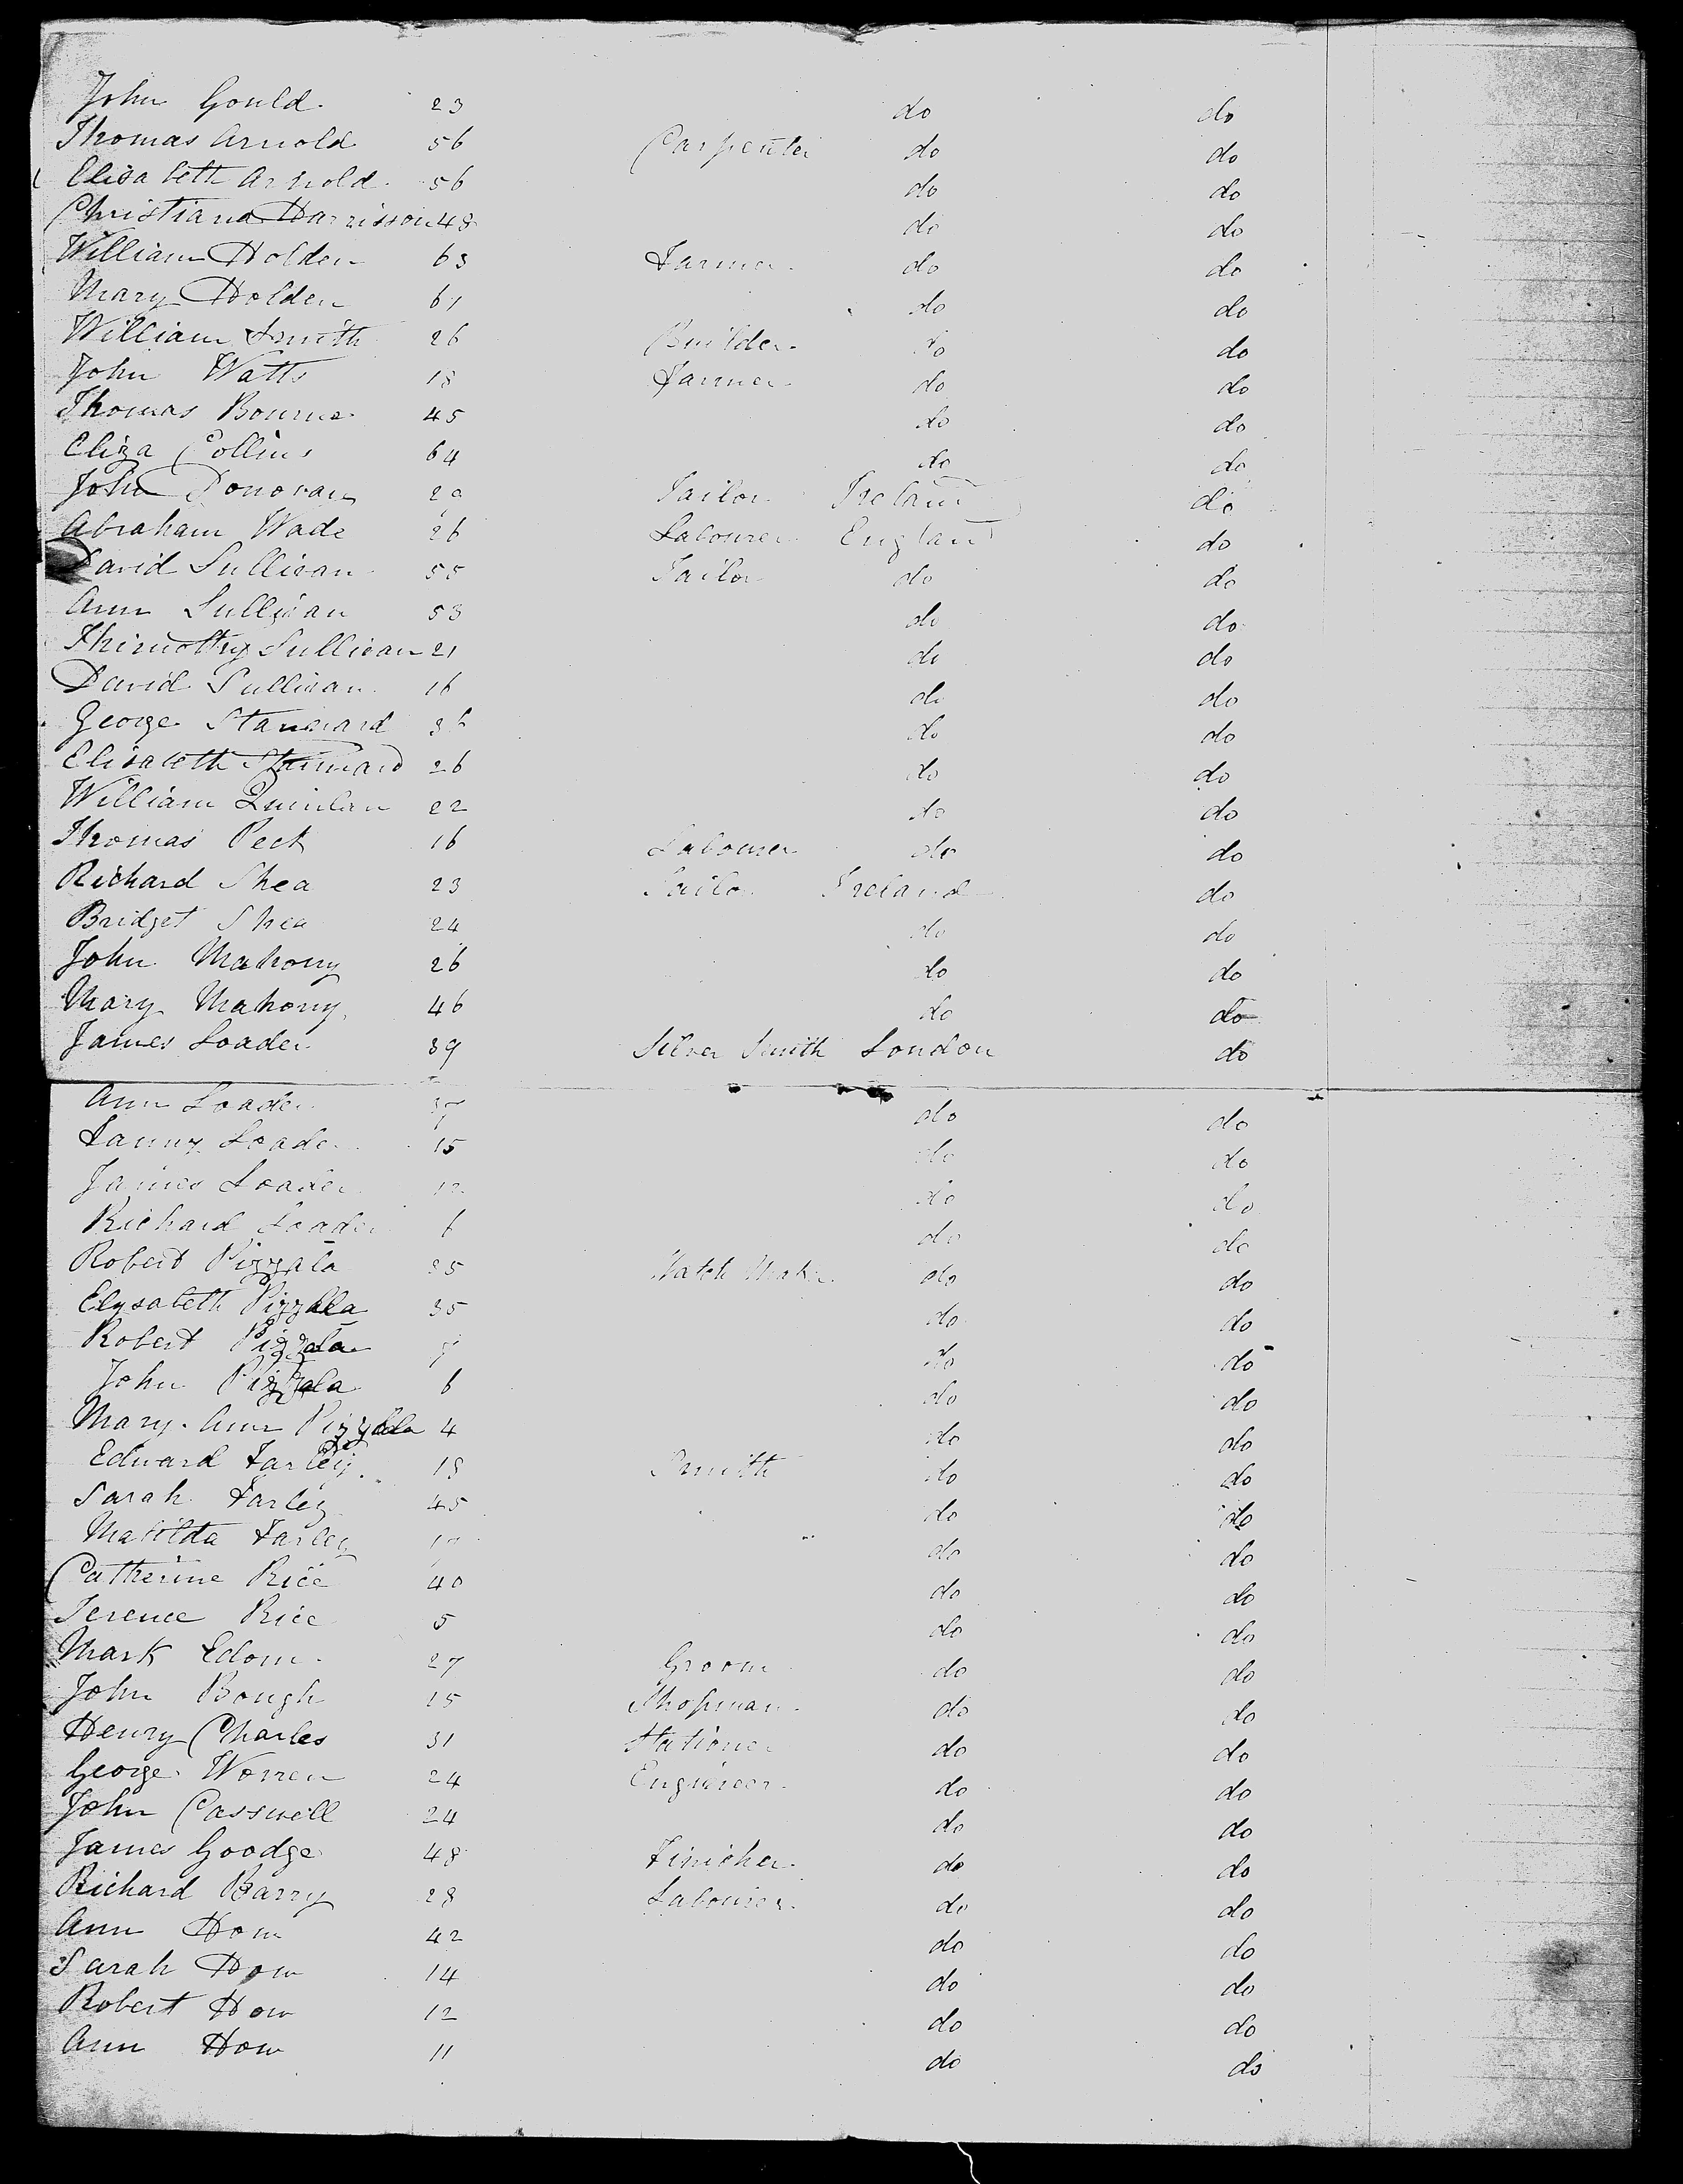 John Gould 23 do do
Thomas Arnold 56 Carpenter do do
Elisabeth Arnold 56 do do
Christiana Harrisson 48 do do
William Holden 63 Farmer do do
Mary Holden 61 do do
William Smith 26 Builder do do
John Watts 18 Farmer do do
Thomas Bourne 45 do do
Eliza Collins 64 do do
John Donovan Tailor Ireland do
Abraham Wade 26 Labourer England do
David Sullivan 55 Tailor do do
Ann Sullivan 53 do do
Thimothy Sullivan 21 do do
David Sullivan 16 do do
George Stannard do do
Elisabeth Stannard 26 do do
William Quinlan 22 do do
Thomas Peck 16 Labourer do do
Richard Shea 23 Ireland do
Bridget Shea 24 do do
John Mahony 26 do do
Mary Mahony 46 do do
James Loader 39 Silver Smith London do
Ann Loader 37 do do
Fanny Loader 15 do do
James Loader do do
Richard Loader 6 do do
Robert Pizzala 35 Watch Maker do do
Elysabeth Pizzala 35 do do
Robert Pizzala do do
John Pizzala 6 do do
Mary Ann Pizzala 4 do do
Edward Farley 18 Smith do do
Sarah Farley 45 do do
Matilda Farley 17 do do
Catherine Rice 40 do do
Terence Rice 5 do do
Mark Edom 27 Groom do do
John Bough 15 Shopman do do
Henry Charles 31 Stationer do do
George Worren 24 Engineer do do
John Casswell 24 do do
James Goodge 48 Finisher do do
Richard Barry 28 Labourer do do
Ann How 42 do do
Sarah How 14 do do
Robert How 12 do do
Ann How 11 do do